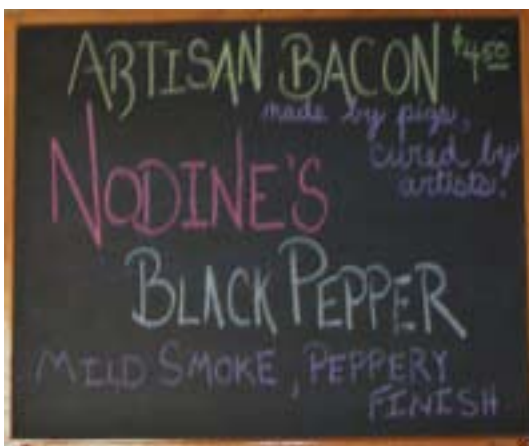 ARTISAN BACON $4.50
made by pigs,
cured by
artists.
NODINE'S
BLACK PEPPER
MILD SMOKE, PEPPERY
FINISH